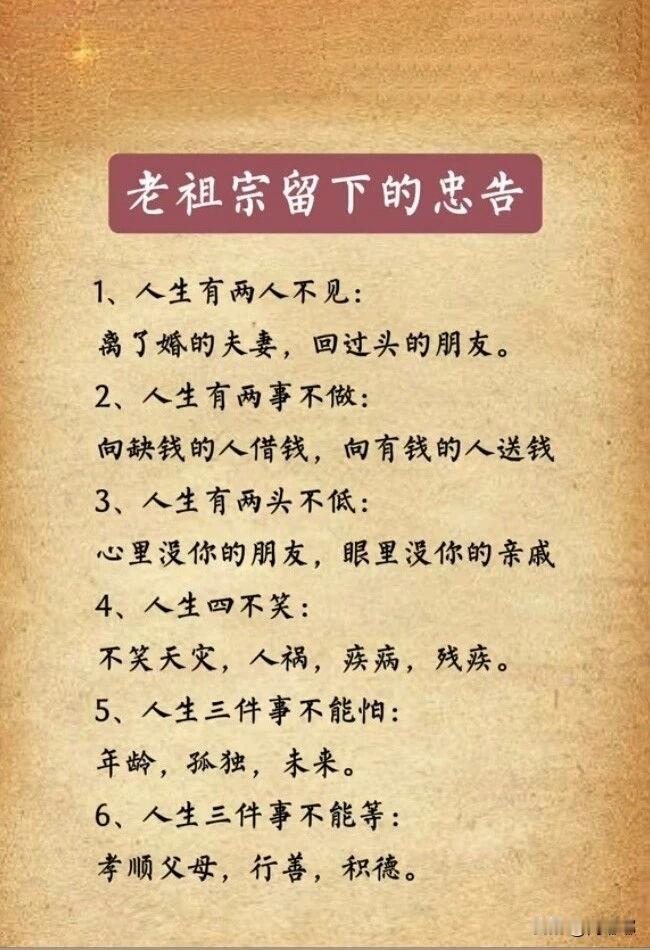 老祖宗留下的忠告
1、人生有两人不见：
离了婚的夫妻，回过头的朋友。
2、人生有两事不做：
向缺钱的人借钱，向有钱的人送钱
3、人生有两头不低：
心里没你的朋友，眼里没你的亲戚
4、人生四不笑：
不笑天灾，人祸，疾病，残疾。
5、人生三件事不能怕：
年龄，孤独，未来。
6、人生三件事不能等：
孝顺父母，行善，积德。